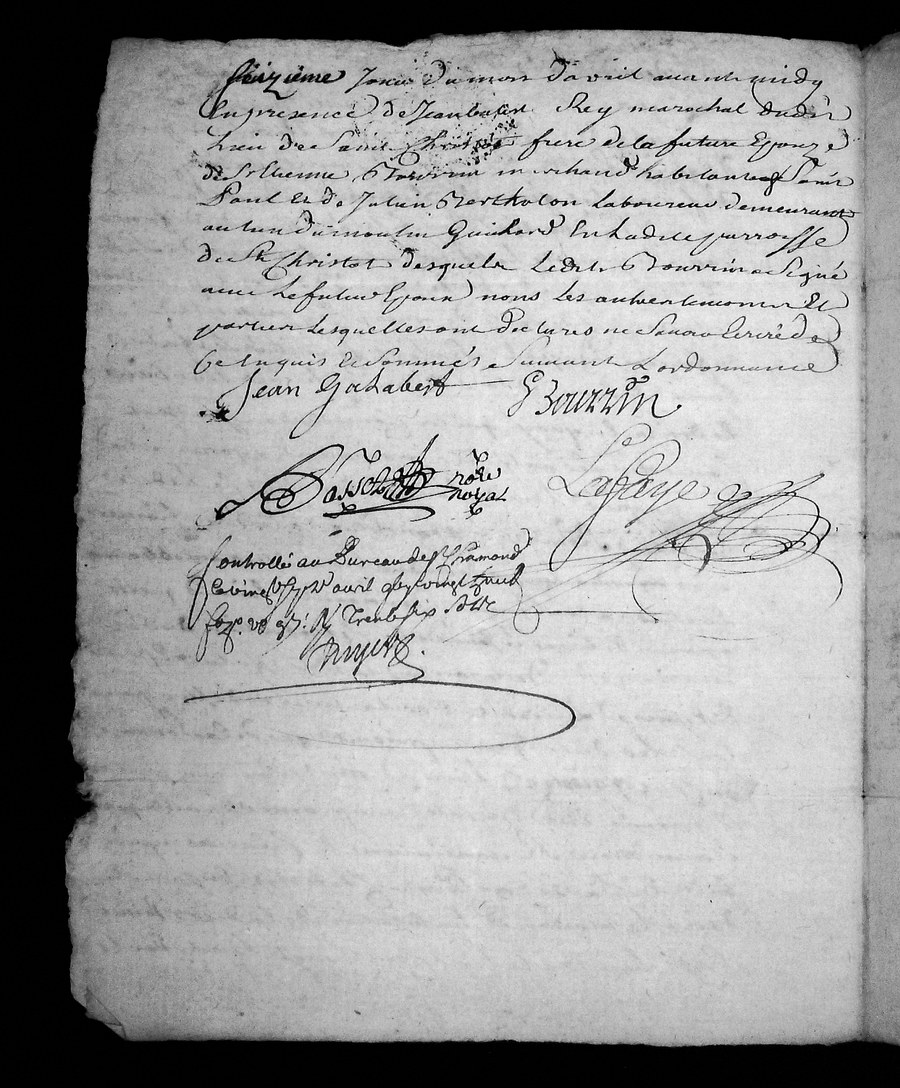 seizieme Jour du mois davril avant midy
En presence de Jean Rey marechal dudit
lieu de Saint Christot frere de la future Epouze
de Sr Etienne Bourrin marchand habitant Saint
Paul Et de Julien Bertholon laboureur demeurant
au lieu du moulin Guichard En ladite parroisse
de St Christot desquels Ledit Bourrin a Signé
avec Le futur Epoux nons les autres temoins Et
parties Lesquelles ont declarés ne Scavoir Ecrire de
Ce Enquis Et Sommés Suivant Lordonnance
Jean Galabert
E Bourrin
Bassot nore
royal
Lafaye
Controllé au Bureau de St Chamond
Le vingt avril vingt neuf
fo. vo Trente six sols